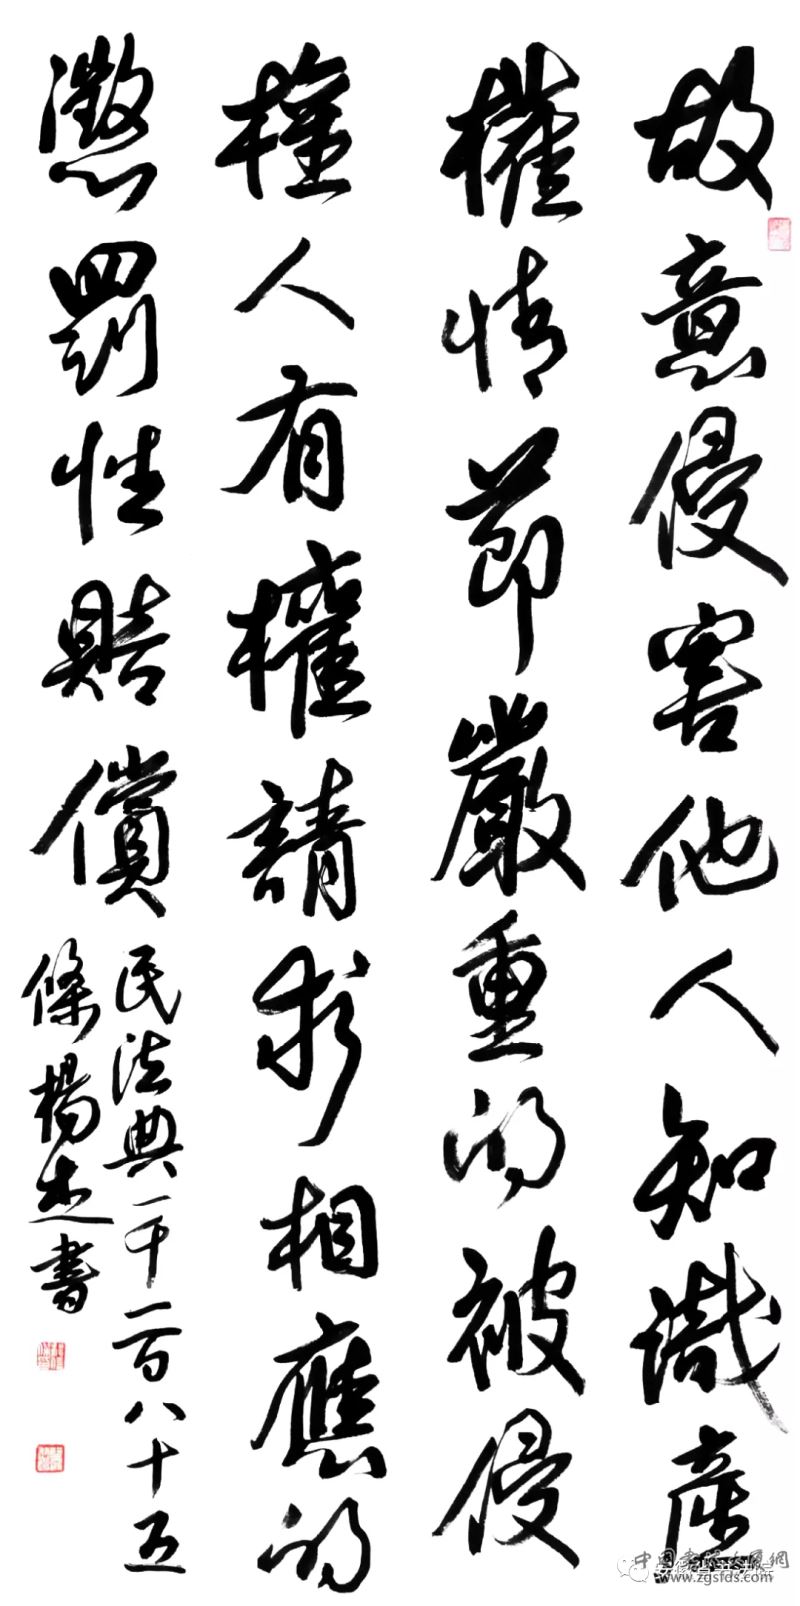 故意侵害他人知識產
權情節嚴重的被侵
權人有權請求相應的
懲罰性賠償
民法典一千一百八十五
條楊杰書
www.zgsfds.com